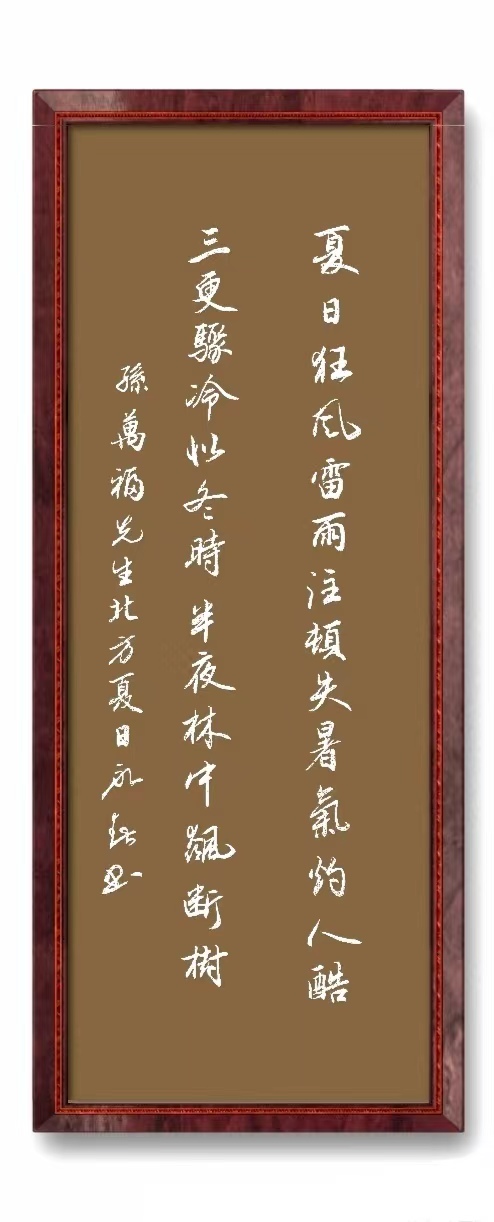 夏日狂风雷雨注顿失暑氣灼人酷
三更驟冷似冬時半夜林中飙断樹
孫萬福先生北方夏日永書